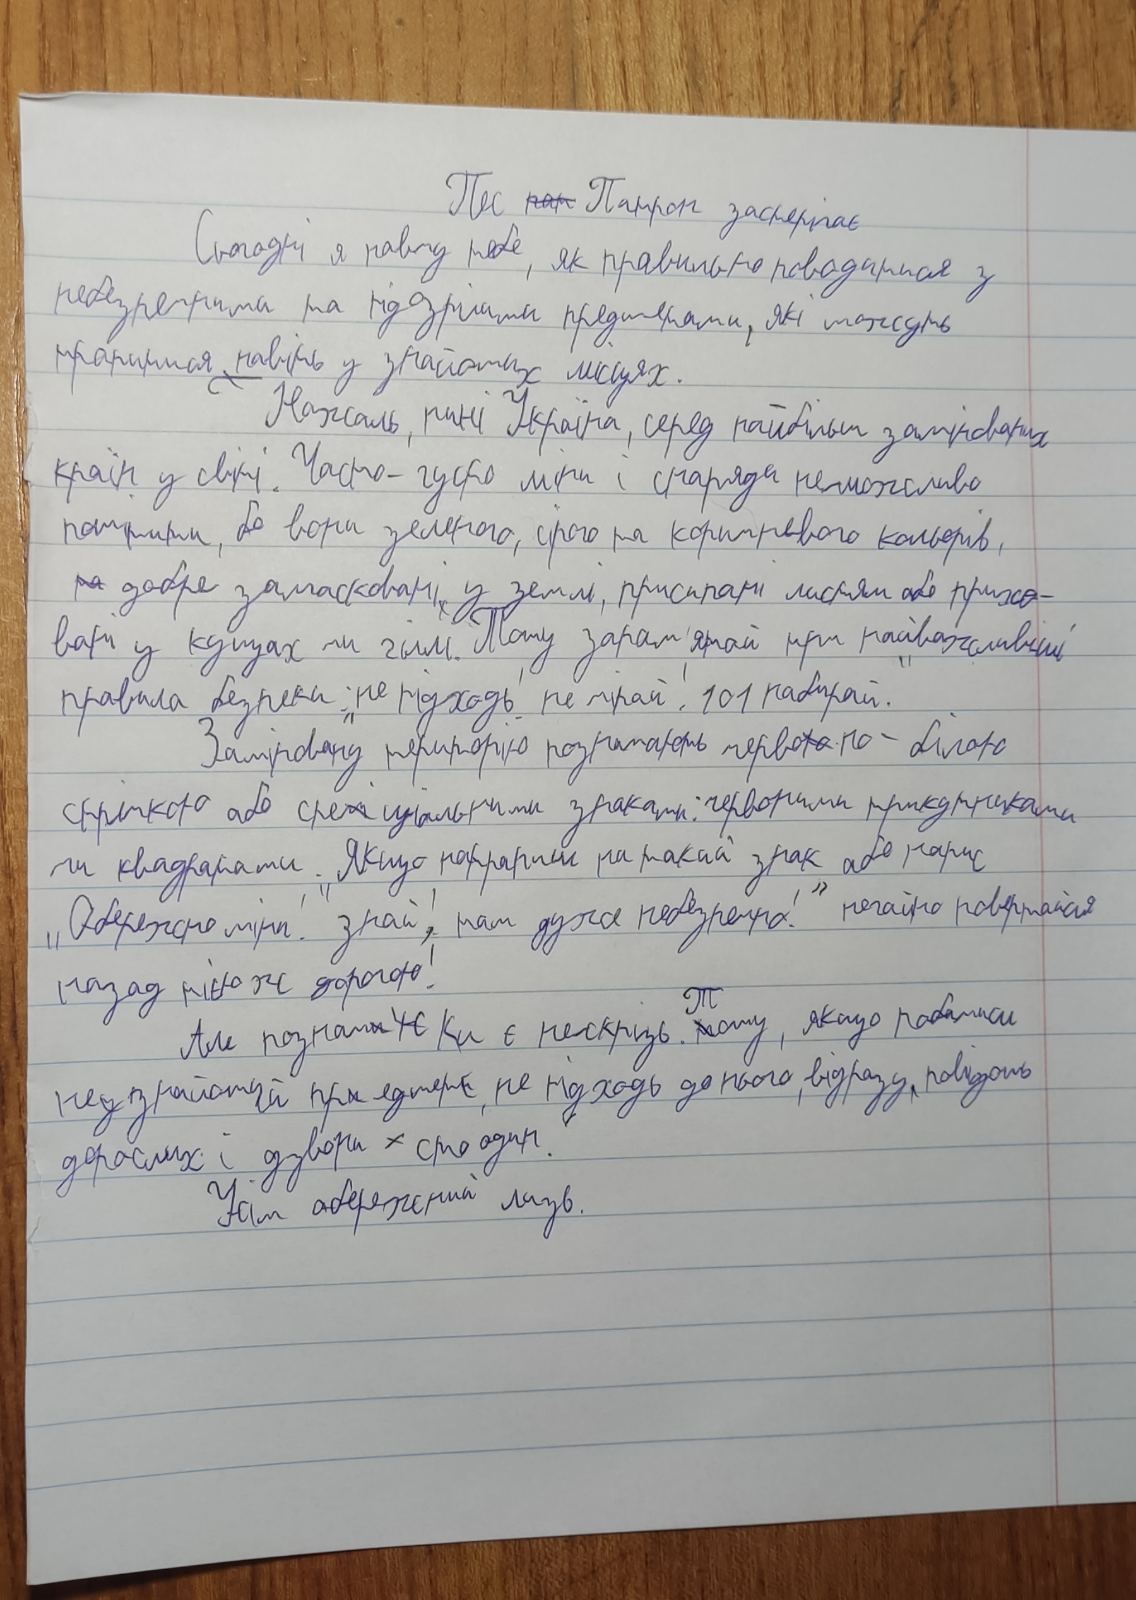 Пес Патрон застерігає
Сьогодні я навчу тебе, як правильно поводитися з
небезпечними та підозрілими предметами, які можуть
трапитися навіть у знайомих місцях.
Нажаль, нині Україна, серед найбільш замінованих
країн у світі. Часто-густо міни і снаряди неможливо
помітити, бо вони зеленого, сірого та коричневого кольорів,
добре замасковані, у землі, присипані листям або прихо-
вані у кущах чи гіллі. Тому запам'ятай три найважливіші
правила безпеки: „не підходь! не чіпай! 101 набирай."
Заміновану територію позначають червоно-білою
стрічкою або спеціальними знаками: червоними трикутниками
чи квадратами. Якщо натрапиш на такий знак або напис
„Обережно міни! знай! там дуже небезпечно!" негайно повертайся
назад тією ж дорогою!
Але позначки є нескрізь. Тому, якщо побачиш
незнайомий предмет, не підходь до нього, відразу, повідом
дорослих і дзвони сто один.
Усім обережний лизь.